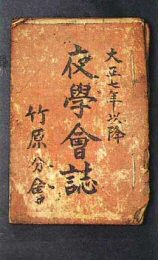 大正七年以降
夜學會誌
竹原分會